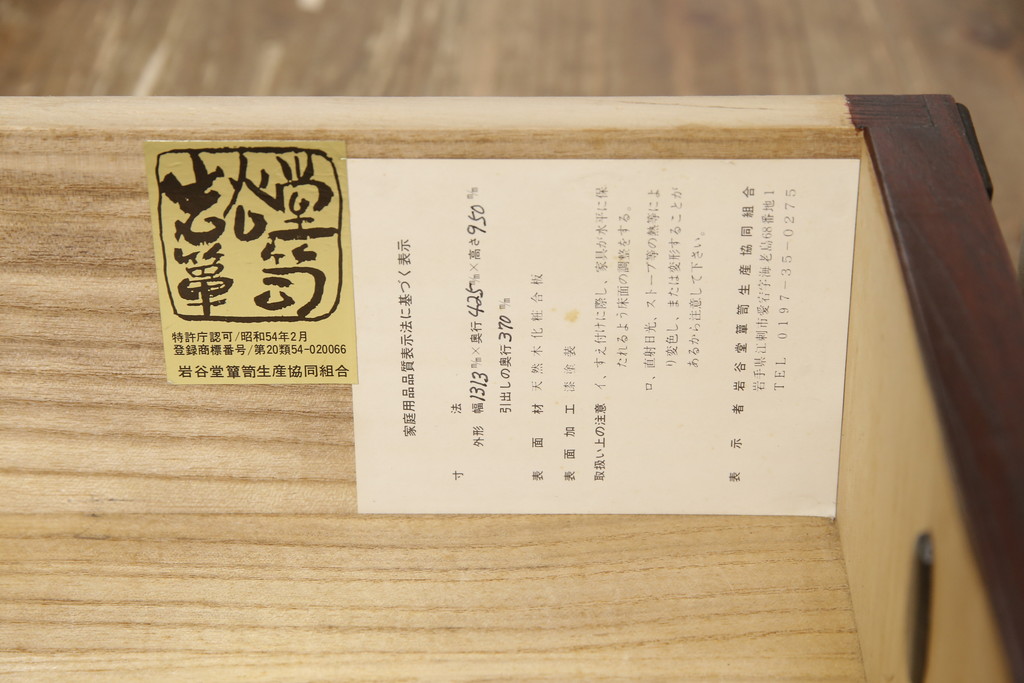 岩谷堂簞笥
特許庁認可/昭和54年2月
登録商標番号/第20類54-020066
岩谷堂簞笥生産協同組合
家庭用品品質表示法に基づく表示
寸法
外形 幅1313㎜×奥行425㎜×高さ950㎜
引出しの奥行370㎜
表面材 天然木化粧合板
表面加工 漆塗装
取扱い上の注意 イ、すえ付けに際し、家具が水平に保
たれるよう床面の調整をする。
ロ、直射日光、ストーブ等の熱等によ
り変色し、または変形することが
あるから注意して下さい。
表示者 岩谷堂簞笥生産協同組合
岩手県江刺市愛宕字海老島68番地1
TEL 0197-35-0275